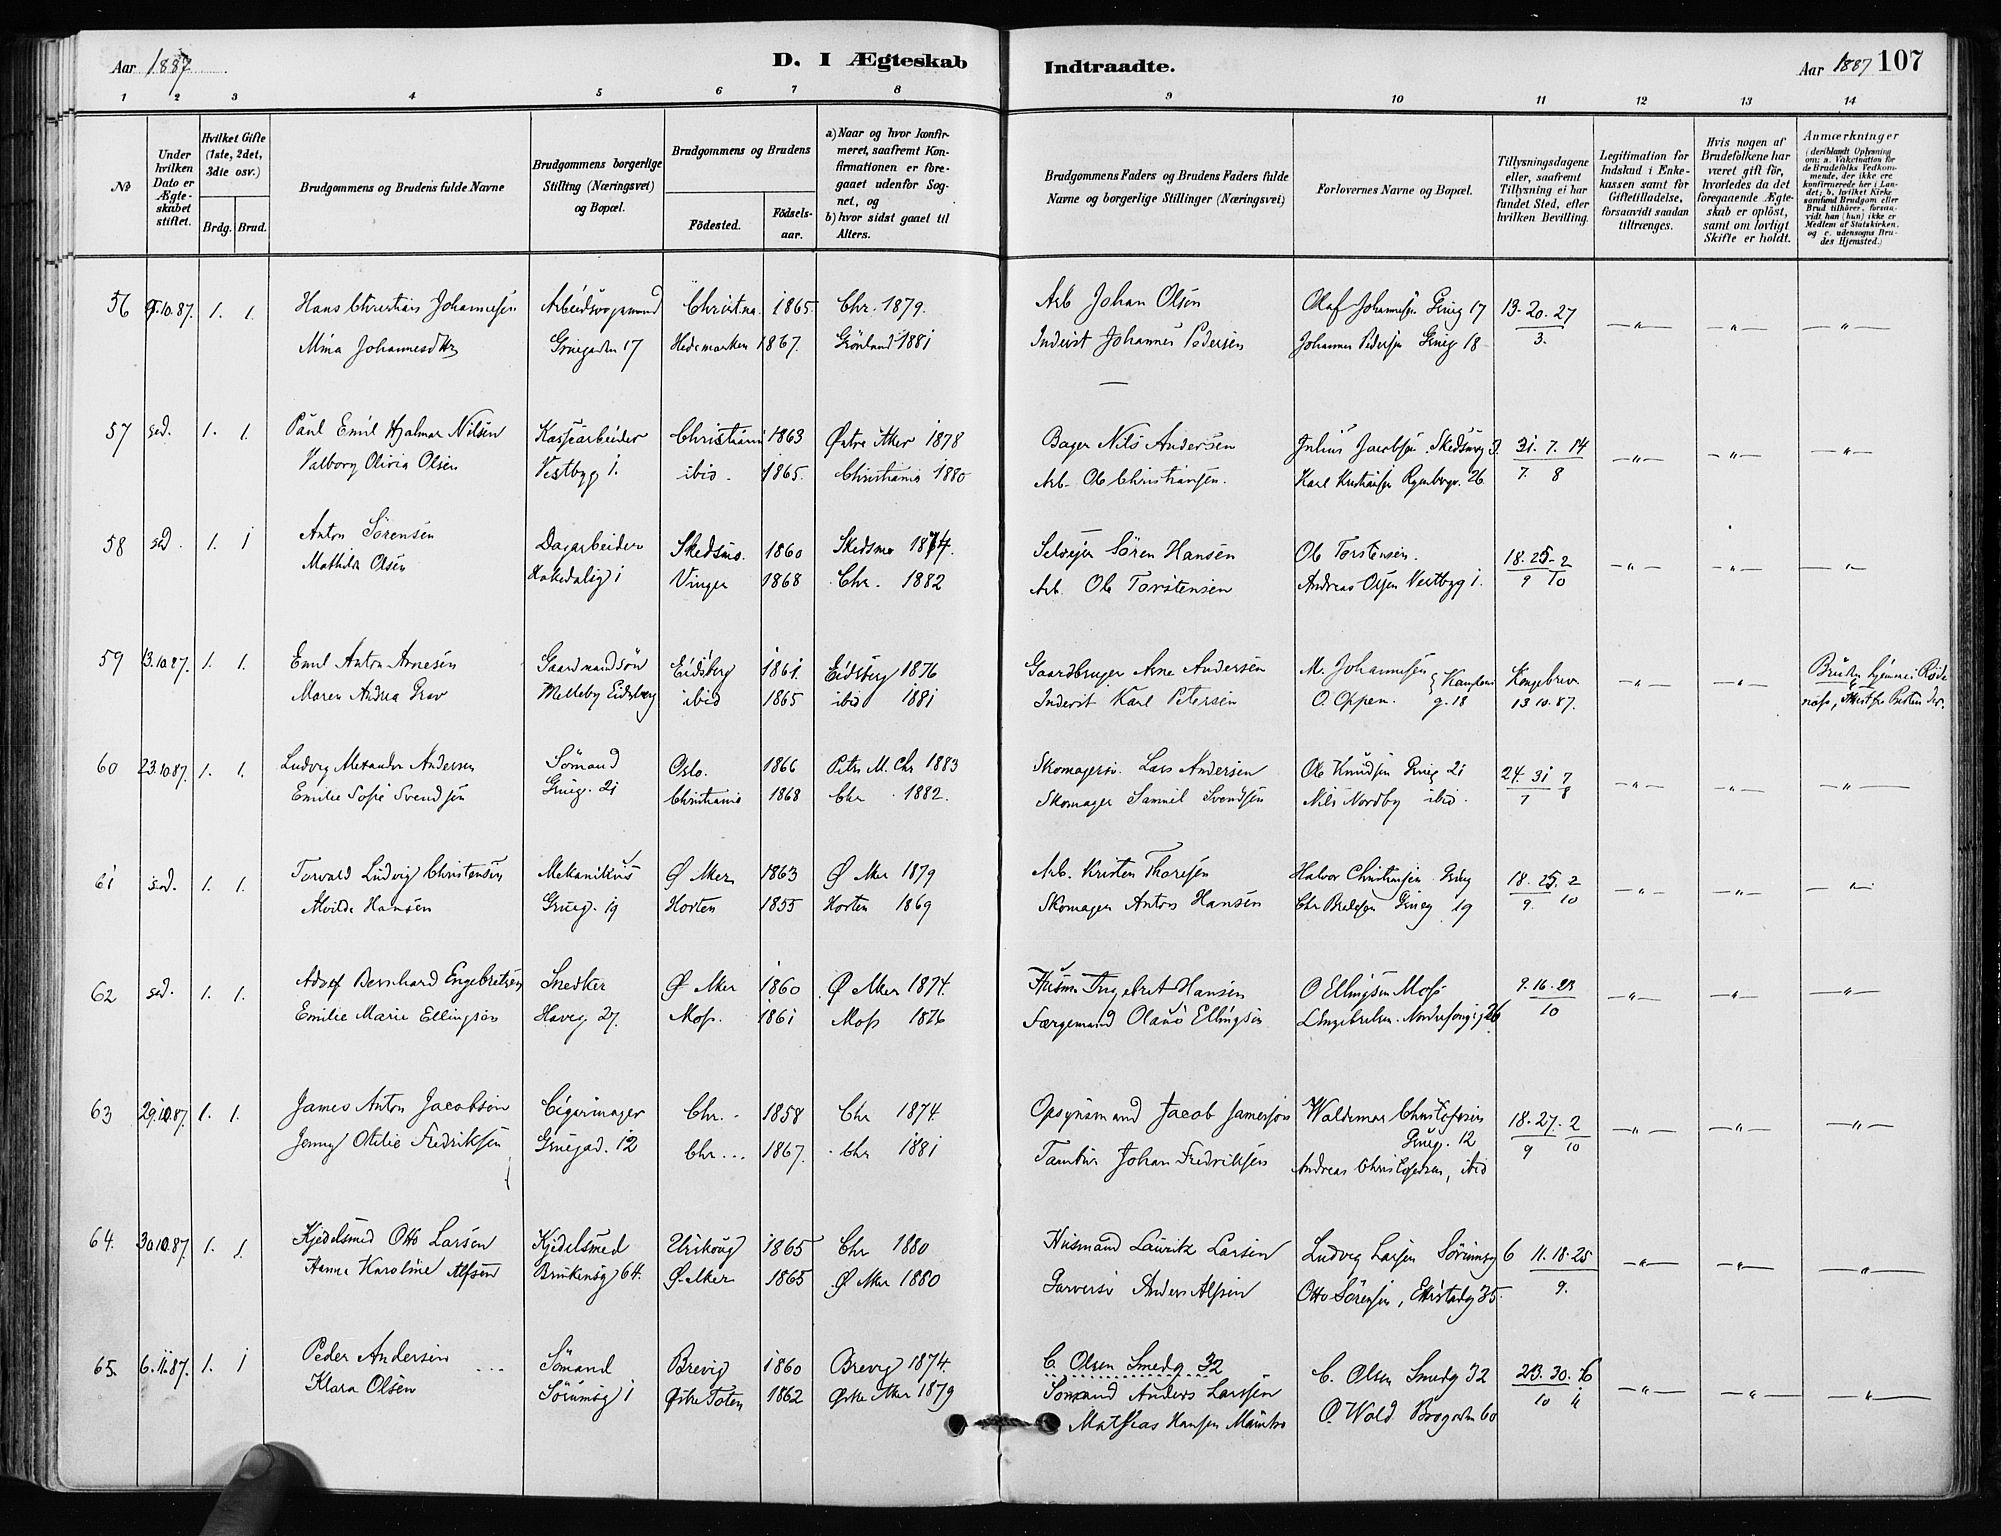 Aar 1887
D. I Ægteskab Indtraadte.
Aar 1887 107
1 2 3 4 5 6 7 8 9 10 11 12 13 14
No
Under hvilken Dato er Ægteskabet stiftet.
Hvilket Gifte (1ste, 2det, 3die osv.)
Brdg. Brud.
Brudgommens og Brudens fulde Navne
Brudgommens borgerlige Stilling (Næringsvei) og Bopæl.
Brudgommens og Brudens
Födested. Födsels-aar.
a) Naar og hvor konfirmeret, saafremt Konfirmationen er foregaaet udenfor Sognet, og
b) hvor sidst gaaet til Alters.
Brudgommens Faders og Brudens Faders fulde Navne og borgerlige Stillinger (Næringsvei)
Forlovernes Navne og Bopæl.
Tillysningsdagene eller, saafremt Tillysning ei har fundet Sted, efter hvilken Bevilling.
Legitimation for Indskud i Enkekassen samt for Giftetilladelse, forsaavidt saadan tiltrænges.
Hvis nogen af Brudefolkene har været gift för, hvorledes da det foregaaende Ægteskab er oplöst, samt om lovligt Skifte er holdt.
Anmærkninger (deriblandt Oplysning om: a. Vakcination for de Brudefolks Vedkommende, der ikke ere konfirmerede her i Landet; b. hvilket Kirkesamfund Brudgom eller Brud tilhörer, forsaavidt han (hun) ikke er Medlem af Statskirken, og c. udensogns Brudes Hjemsted.)
56 9.10.87. 1. 1. Hans Christian Johannesen Christ.na. 1865. Chr. 1879. Arb Johan Olsen Olaf Johannesen Grueg 17 13. 20. 27
Mina Johannesdtr Gruegaden 17 Hedemarken 1867. Grönland 1881 Inderst Johannes Pedersen Johannes Pedersen Grueg 18 3.
57 sed. 1. 1. Paul Emil Hjalmar Nilsen Christiania 1863 Østre Aker 1878 Bager Nils Andersen Julius Jacobsen Skedsmog 3. 31. 7. 14
Valborg Olivia Olsen Vestbyg 1. ibid. 1865. Christiania 1880 Arb. Ole Christiansen. Karl Kristiansen 26 7. 8
58 sed. 1. 1 Anton Sörensen Dagarbeider Skedsmo. 1860 Skedsmo 1874. Selveier Sören Hansen Ole Torstensen. 18. 25. 2
Mathilde Olsen Hakedalsg 1 Vinger 1868 Chr. 1882 Arb. Ole Torstensen Andreas Olsen Vestbyg 1. 9 10
59 13.10.87. 1. 1. Emil Anton Arnesen Gaardmandsön Eidsberg 1861. Eidsberg 1876 Gaardbruger Arne Andersen M. Johannesen Kongebrev
Maren Andrea Grav Melleby Eidsberg ibid 1865 ibid 1881 Inderst Karl Petersen O. Oppen. g. 18 13 10. 87.
60 23.10.87. 1. 1. Ludvig Alexander Andersen Sömand Oslo. 1866 Petri M. Chr 1883 Lars Andersen Ole Knudsen Grueg 21 24. 31 7
Emilie Sofie Svendsen Grueg. 21 Christiania 1868 Chr. 1882. Skomager Samuel Svendsen Nils Nordby ibid. 7 8
61 sed. 1. 1. Torvald Ludvig Christensen Ø Aker 1863 Ø Aker 1879 Arb. Kristen Thoresen Halvor Christiansen Grueg 18. 25. 2
Alvilde Hansen Grueg. 19 Horten 1855 Horten 1869 Skomager Anton Hansen Chr Grueg 19 9. 10
62 sed. 1. 1. Adolf Bernhard Engebretsen Snedker Ø Aker 1860 Ø Aker 1874. Husm Ingebret Hansen O Ellingsen Moss 9. 16. 23
Emilie Marie Ellingsen Haveg 27. Moss. 1861 Moss 1876 Færgemand Olaus Ellingsen 10
63 29.10.87. 1. 1. James Anton Jacobsen Cigarmager Chr. 1858 Chr 1874. Opsynsmand Jacob Jamessen Waldemar Christofersen 18. 27. 2
Grueg. 12
Jenny Otilie Fredriksen Gruegad. 12 Chr... 1867. Chr 1881 Johan Fredriksen Andreas Christofersen, ibid 9 10
64. 30.10.87. 1. 1. Kjedelsmed Otto Larsen Kjedelsmed Urskoug 1865 Chr 1880 Husmand Lauritz Larsen Ludvig Larsen Sörumsg 6 11. 18. 25
Hanna Karoline Alfsen 64. Ø. Aker 1865 Ø Aker 1880 Anders Alfsen Otto Sörensen, 35. 9.
65. 6.11.87. 1. 1 Peder Andersen Sömand Brevig 1860 Brevig 1874. C. Olsen Smedg 32 C. Olsen Smedg 32 23. 30. 6
Klara Olsen Sörumsg 1 Østre Toten 1862 Østre Aker 1879 Sömand Anders Larssen O. Wold 60 10 11
Mathias Hansen